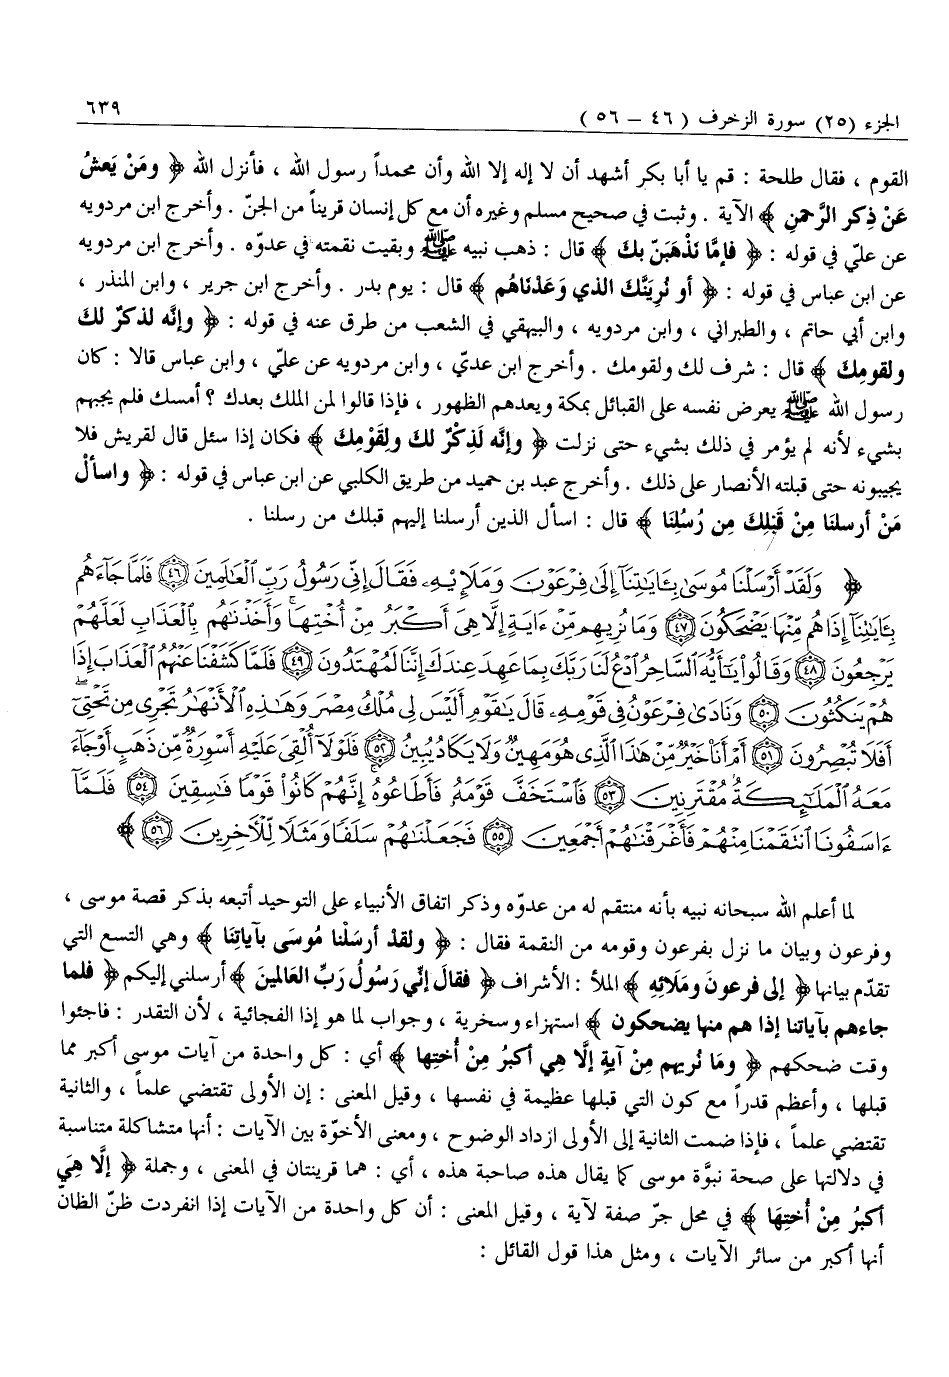 الجزء (٢٥) سورة الزخرف ( ٤٦ – ٥٦ ) ٦٣٩
القوم ، فقال طلحة : قم يا أبا بكر أشهد أن لا إله إلا الله وأن محمداً رسول الله ، فأنزل الله ﴿ ومَنْ يَعشُ
عَنْ ذِكرِ الرَّحمنِ ﴾ الآية . وثبت في صحيح مسلم وغيره أن مع كل إنسان قريناً من الجنّ . وأخرج ابن مردويه
عن عليّ في قوله : ﴿ فإمَّا نَذْهَبَنّ بكَ ﴾ قال : ذهب نبيه ﷺ وبقيت نقمته في عدوّه . وأخرج ابن مردويه
عن ابن عباس في قوله : ﴿ أو نُرِيَنَّكَ الذي وَعَدْنَاهُم ﴾ قال : يوم بدر . وأخرج ابن جرير ، وابن المنذر ،
وابن أبي حاتم ، والطبراني ، وابن مردويه ، والبيهقي في الشعب من طرق عنه في قوله : ﴿ وإنَّه لذكرٌ لكَ
ولقومِكَ ﴾ قال : شرف لك ولقومك . وأخرج ابن عديّ ، وابن مردويه عن عليّ ، وابن عباس قالا : كان
رسول الله ﷺ يعرض نفسه على القبائل بمكة ويعدهم الظهور ، فإذا قالوا لمن الملك بعدك ؟ أمسك فلم يجبهم
بشيء لأنه لم يؤمر في ذلك بشيء حتى نزلت ﴿ وإنَّه لَذِكْرٌ لكَ ولِقَوْمِكَ ﴾ فكان إذا سئل قال لقريش فلا
يجيبونه حتى قبلته الأنصار على ذلك . وأخرج عبد بن حميد من طريق الكلبي عن ابن عباس في قوله : ﴿ واسألْ
مَنْ أرسلنَا مِنْ قَبْلِكَ مِن رُسُلِنَا ﴾ قال : اسأل الذين أرسلنا إليهم قبلك من رسلنا .
﴿ وَلَقَدْ أَرْسَلْنَا مُوسَىٰ بِـَٔايَـٰتِنَآ إِلَىٰ فِرْعَوْنَ وَمَلَإِيْهِۦ فَقَالَ إِنِّى رَسُولُ رَبِّ ٱلْعَـٰلَمِينَ ٤٦ فَلَمَّا جَآءَهُم
بِـَٔايَـٰتِنَآ إِذَا هُم مِّنْهَا يَضْحَكُونَ ٤٧ وَمَا نُرِيهِم مِّنْ ءَايَةٍ إِلَّا هِىَ أَكْبَرُ مِنْ أُخْتِهَا ۖ وَأَخَذْنَـٰهُم بِٱلْعَذَابِ لَعَلَّهُمْ
يَرْجِعُونَ ٤٨ وَقَالُوا۟ يَـٰٓأَيُّهَ ٱلسَّاحِرُ ٱدْعُ لَنَا رَبَّكَ بِمَا عَهِدَ عِندَكَ إِنَّنَا لَمُهْتَدُونَ ٤٩ فَلَمَّا كَشَفْنَا عَنْهُمُ ٱلْعَذَابَ إِذَا
هُمْ يَنكُثُونَ ٥٠ وَنَادَىٰ فِرْعَوْنُ فِى قَوْمِهِۦ قَالَ يَـٰقَوْمِ أَلَيْسَ لِى مُلْكُ مِصْرَ وَهَـٰذِهِ ٱلْأَنْهَـٰرُ تَجْرِى مِن تَحْتِىٓ ۖ
أَفَلَا تُبْصِرُونَ ٥١ أَمْ أَنَا۠ خَيْرٌ مِّنْ هَـٰذَا ٱلَّذِى هُوَ مَهِينٌ وَلَا يَكَادُ يُبِينُ ٥٢ فَلَوْلَآ أُلْقِىَ عَلَيْهِ أَسْوِرَةٌ مِّن ذَهَبٍ أَوْ جَآءَ
مَعَهُ ٱلْمَلَـٰٓئِكَةُ مُقْتَرِنِينَ ٥٣ فَٱسْتَخَفَّ قَوْمَهُۥ فَأَطَاعُوهُ ۚ إِنَّهُمْ كَانُوا۟ قَوْمًا فَـٰسِقِينَ ٥٤ فَلَمَّآ
ءَاسَفُونَا ٱنتَقَمْنَا مِنْهُمْ فَأَغْرَقْنَـٰهُمْ أَجْمَعِينَ ٥٥ فَجَعَلْنَـٰهُمْ سَلَفًا وَمَثَلًا لِّلْـَٔاخِرِينَ ٥٦ ﴾
لما أعلم الله سبحانه نبيه بأنه منتقم له من عدوّه وذكر اتفاق الأنبياء على التوحيد أتبعه بذكر قصة موسى ،
وفرعون وبيان ما نزل بفرعون وقومه من النقمة فقال : ﴿ ولقدْ أرسَلْنا مُوسَى بآياتِنَا ﴾ وهي التسع التي
تقدّم بيانها ﴿ إلى فرعونَ ومَلَائِهِ ﴾ الملأ : الأشراف ﴿ فقالَ إنّي رَسُولُ رَبِّ العالمينَ ﴾ أرسلني إليكم ﴿ فلما
جاءهم بآياتنا إذا هم منها يضحكون ﴾ استهزاء وسخرية ، وجواب لما هو إذا الفجائية ، لأن التقدر : فاجئوا
وقت ضحكهم ﴿ ومَا نُريهم مِنْ آيةٍ إلَّا هِي أكبرُ مِنْ أُختِها ﴾ أي : كل واحدة من آيات موسى أكبر مما
قبلها ، وأعظم قدراً مع كون التي قبلها عظيمة في نفسها ، وقيل المعنى : إن الأولى تقتضي علماً ، والثانية
تقتضي علماً ، فإذا ضمت الثانية إلى الأولى ازداد الوضوح ، ومعنى الأخوّة بين الآيات : أنها متشاكلة متناسبة
في دلالتها على صحة نبوَّة موسى كما يقال هذه صاحبة هذه ، أي : هما قرينتان في المعنى ، وجملة ﴿ إلَّا هِيَ
أكبرُ مِنْ أُختِهَا ﴾ في محل جرّ صفة لآية ، وقيل المعنى : أن كل واحدة من الآيات إذا انفردت ظنّ الظانّ
أنها أكبر من سائر الآيات ، ومثل هذا قول القائل :